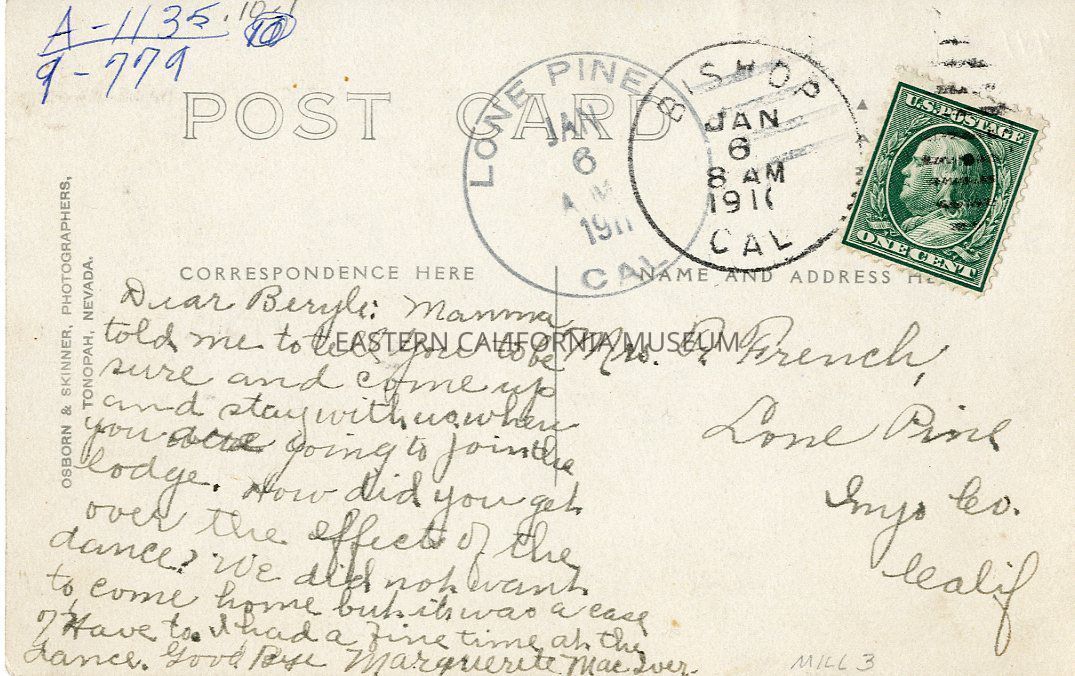 A-1135
9-779
POST CARD
LONE PINE
JAN
6
A.M.
1911
CAL
BISHOP
JAN
6
8 AM
1911
CAL
U.S. POSTAGE
ONE CENT
OSBORN & SKINNER, PHOTOGRAPHERS,
TONOPAH, NEVADA.
CORRESPONDENCE HERE
Dear Beryle: Mamma
told me to tell you to be
sure and come up
and stay with us when
you are going to join the
lodge. How did you get
over the effect of the
dance? We did not want
to come home but it was a case
of Have to. I had a fine time at the
dance. Good Bye Marguerite Mac Iver.
NAME AND ADDRESS HE
Mrs. P. French,
Lone Pine
Inyo Co.
Calif
EASTERN CALIFORNIA MUSEUM
MILL 3